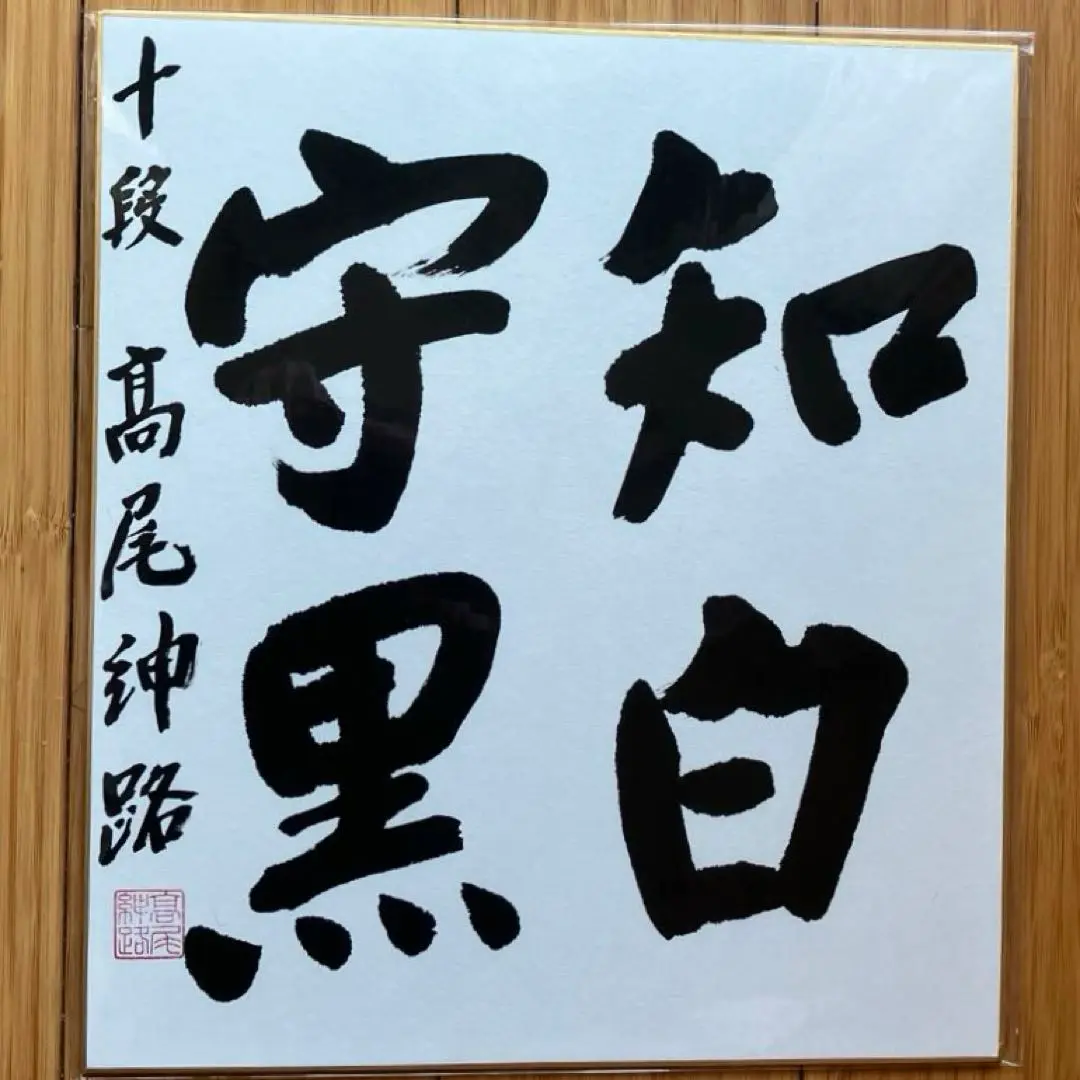 知白
守黒
十段 高尾紳路
高尾
紳路